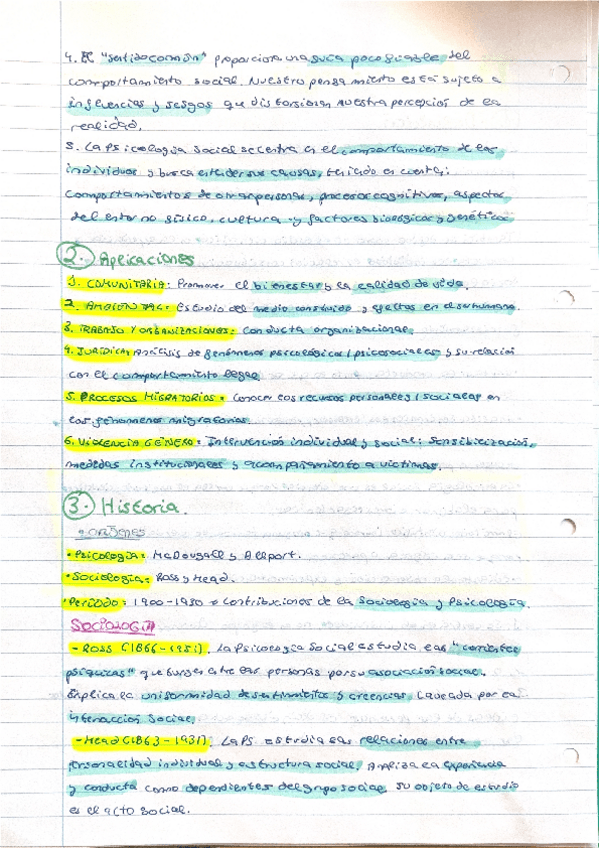 4. El "sentido común" proporciona una guía poco fiable del
comportamiento social. Nuestro pensamiento está sujeto a
influencias y sesgos que distorsionan nuestra percepción de la
realidad.
5. La Psicología Social se centra en el comportamiento de los
individuos y busca entender sus causas, teniendo en cuenta:
comportamientos de otras personas, procesos cognitivos, aspectos
del entorno físico, cultura y factores biológicos y genéticos.
2. Aplicaciones
1. COMUNITARIA: Promover el bienestar y la calidad de vida.
2. AMBIENTAL: Estudio del medio construido y efectos en el ser humano.
3. TRABAJO Y ORGANIZACIONES: Conducta organizacional.
4. JURÍDICA: Análisis de fenómenos psicológicos / psicosociales y su relación
con el comportamiento legal
5. PROCESOS MIGRATORIOS: Conocer los recursos personales / sociales en
los fenómenos migratorios
6. VIOLENCIA GÉNERO: Intervención individual y social: Sensibilización,
medidas institucionales y acompañamiento a víctimas.
3. Historia.
ORÍGENES
• Psicología: McDougall y Allport.
• Sociología: Ross y Mead.
• Período: 1900-1930 Contribuciones de la Sociología y Psicología.
SOCIOLOGÍA
- Ross (1866-1951). La Psicología Social estudia las "corrientes
psíquicas" que surgen entre las personas por su asociación social.
Explica la uniformidad de sentimientos y creencias causada por la
interacción social.
- Mead (1863-1931). La PS. estudia las relaciones entre
personalidad individual y estructura social. Analiza la experiencia
y conducta como dependientes del grupo social. Su objeto de estudio
es el acto social.